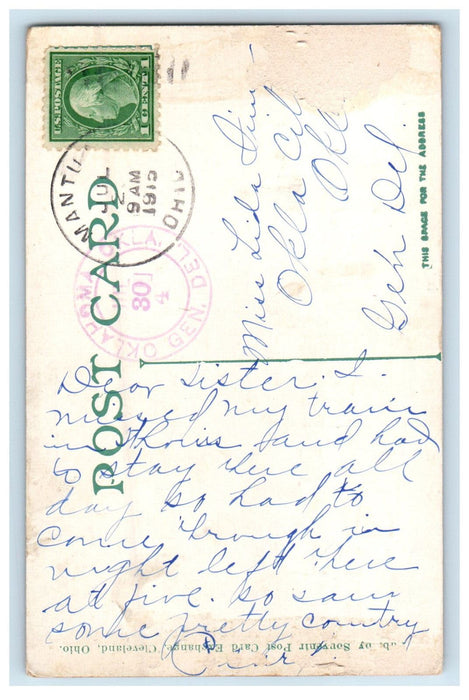 U.S. POSTAGE
1 CENT 1
MANTUA
JUL
9 AM
1915
OHIO
OKLAHOMA CITY,
GEN. DEL.
301
4
POST CARD
THIS SPACE FOR THE ADDRESS
Miss Lida
Okla City
Okla
Gen Del.
Dear Sister. I
missed my train
in and had
to stay there all
day so had to
come through in
night left there
at five. so saw
some pretty country
Pub. by Souvenir Post Card Exchange, Cleveland, Ohio.